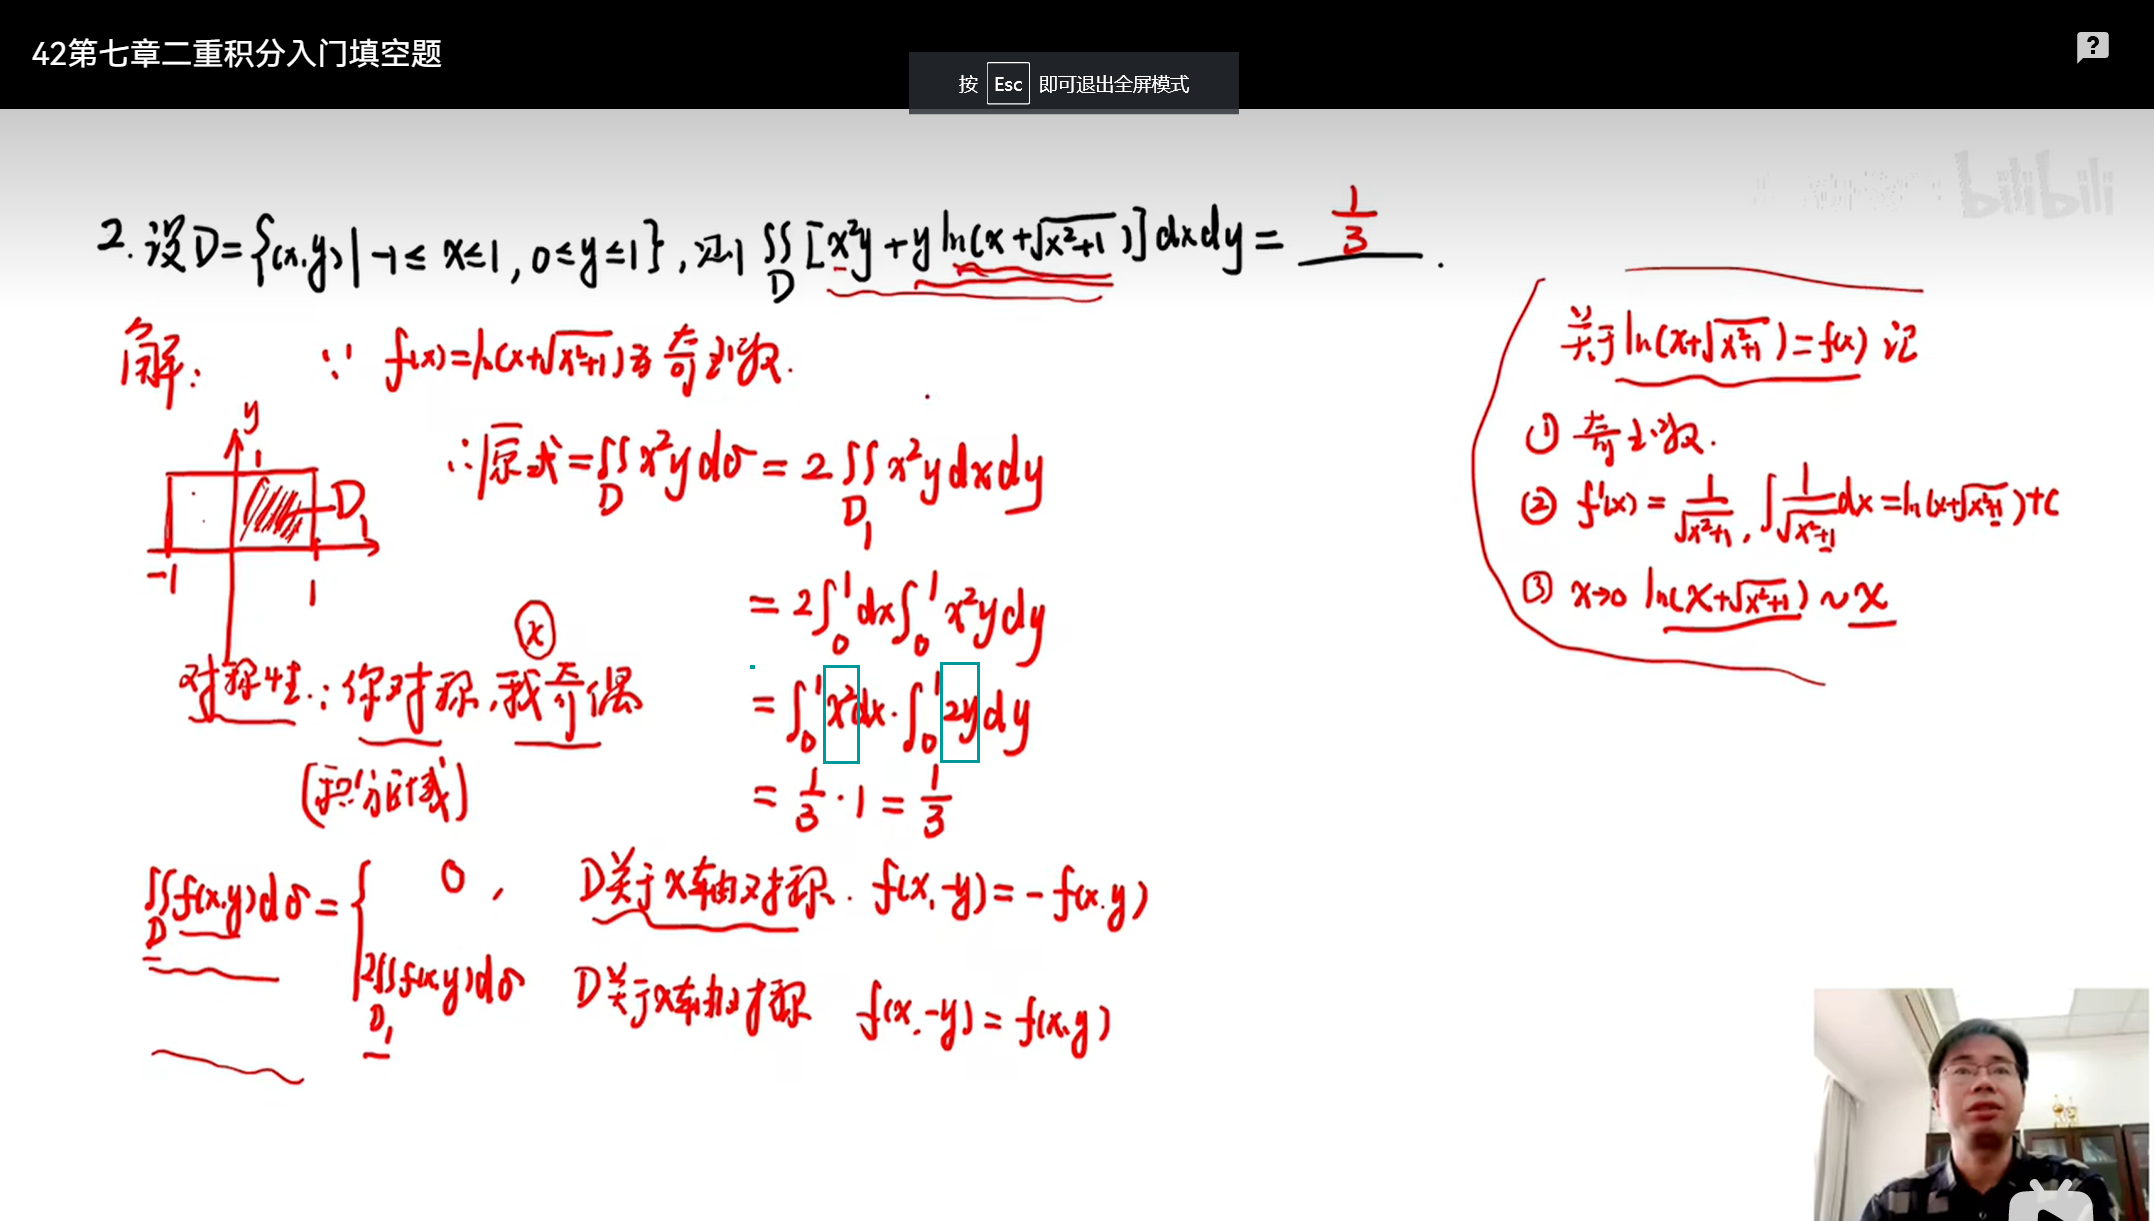 42第七章二重积分入门填空题
按 Esc 即可退出全屏模式
bilibili
2.设D={(x,y)|-1≤x≤1,0≤y≤1},则∬_D[x²y+yln(x+√(x²+1))]dxdy=1/3.
解:
∵ f(x)=ln(x+√(x²+1))为奇函数.
∴原式=∬_D x²ydσ=2∬_{D₁}x²ydxdy
y
1
D₁
-1
1
=2∫₀¹dx∫₀¹x²ydy
=∫₀¹x²dx·∫₀¹2ydy
=1/3·1=1/3
x
对称性:你对称,我奇偶
(积分区域)
∬_D f(x,y)dσ={ 0, D关于x轴对称. f(x,-y)=-f(x,y)
2∬_{D₁}f(x,y)dσ D关于x轴对称 f(x,-y)=f(x,y)
关于ln(x+√(x²+1))=f(x)记
① 奇函数.
② f'(x)=1/√(x²+1),∫1/√(x²+1)dx=ln(x+√(x²+1))+C
③ x→0 ln(x+√(x²+1))~x